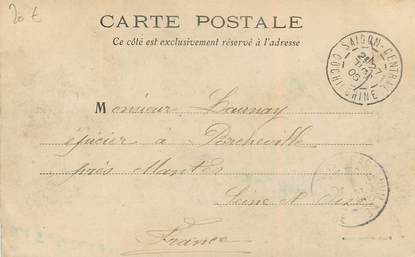 20 €
CARTE POSTALE
Ce côté est exclusivement réservé à l'adresse
SAIGON-CENTRAL
COCHINCHINE
Monsieur Launay
épicier à Porcheville
près Mantes
Seine et Oise
France